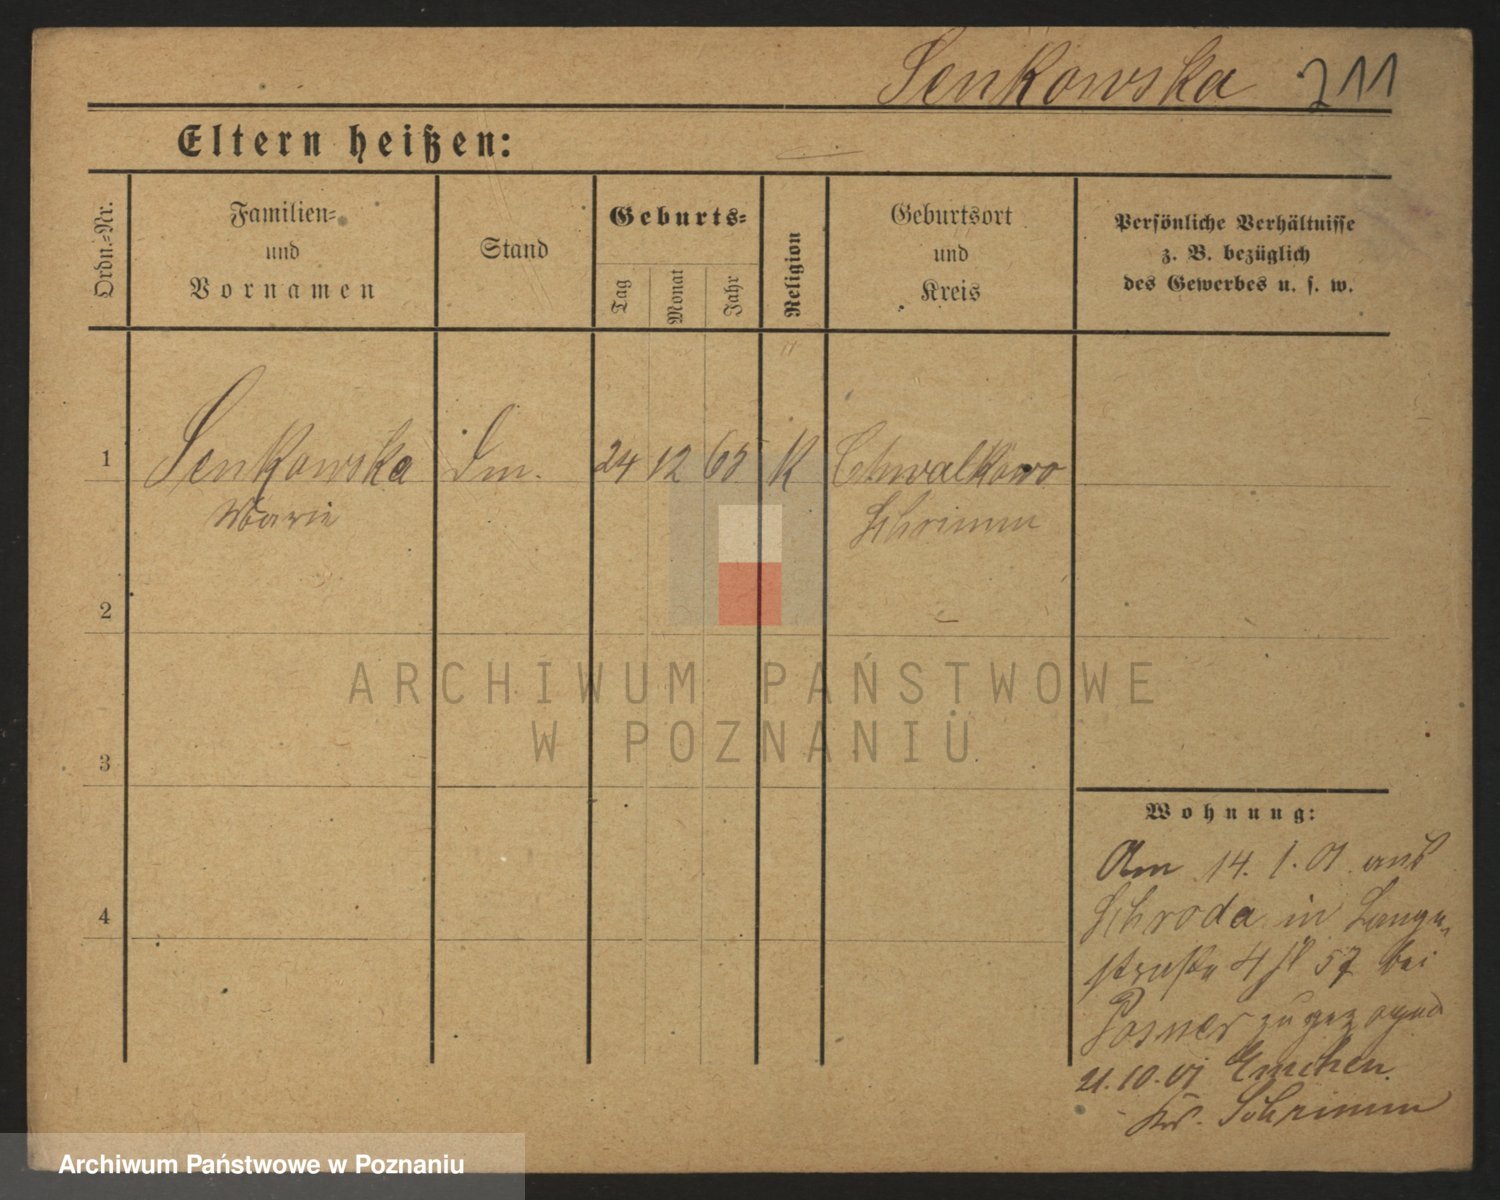 Senkowska 211
Eltern heißen:
Ordn.=Nr.
Familien=
und
Vornamen
Stand
Geburts=
Tag
Monat
Jahr
Religion
Geburtsort
und
Kreis
Persönliche Verhältnisse
z. B. bezüglich
des Gewerbes u. s. w.
1 Senkowska Dm. 24 12 65 K Chwalkowo
Marie Schrimm
2
3
4
ARCHIWUM PAŃSTWOWE
W POZNANIU
Wohnung:
Am 14. 1. 01 aus
Schroda in Lange
straße 4 bei
zugezogen
21.10.01 Emchen
Krs. Schrimm
Archiwum Państwowe w Poznaniu